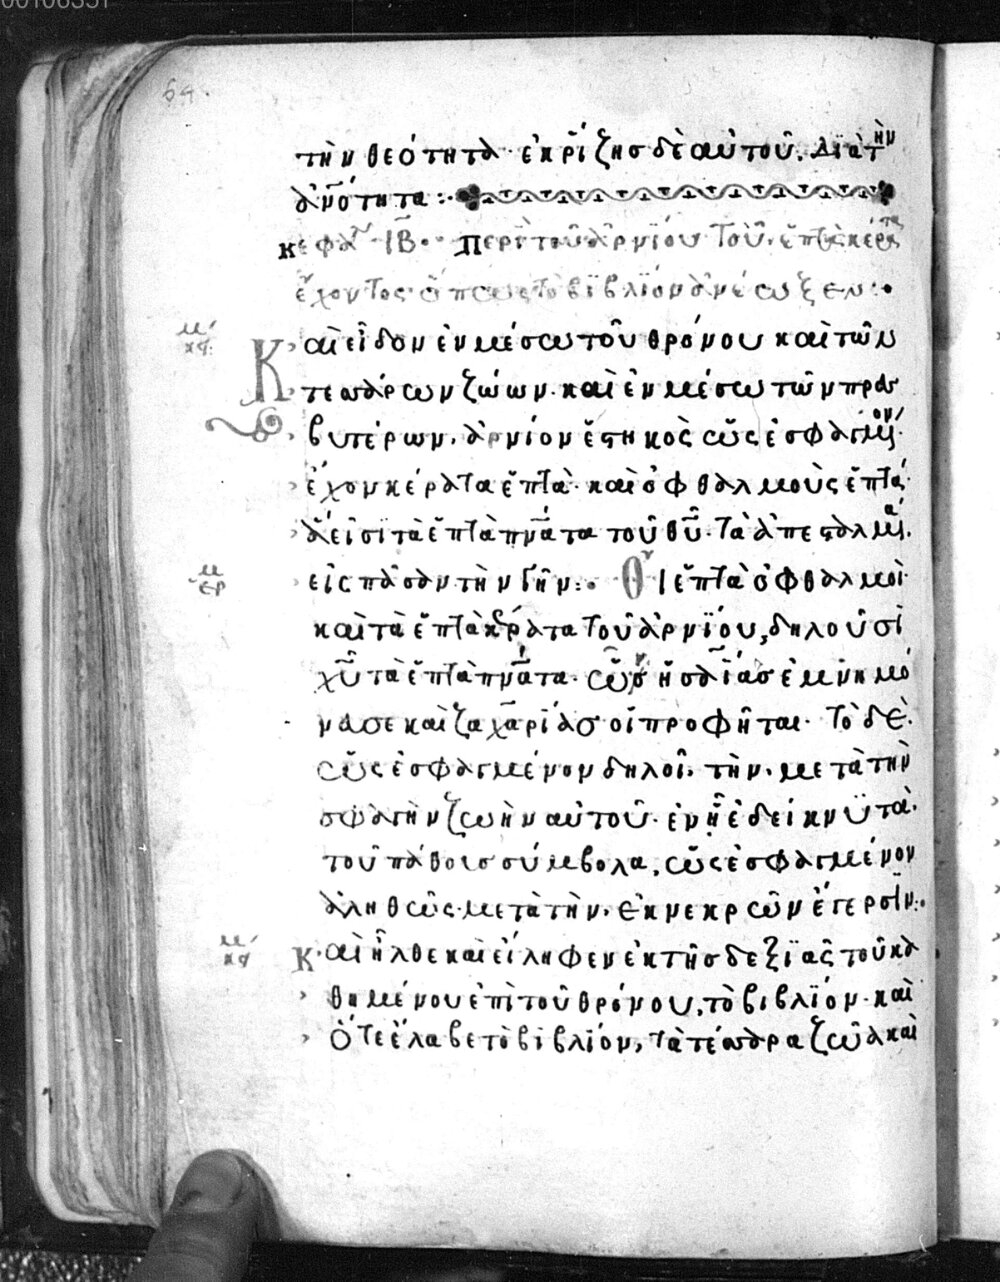 64.
τὴν θεότητα· ἐκ ρίζησ δὲ αὐτοῦ. διὰ τὴν
ἀν̅ότητα :·
κεφαλ ΙΒ· Περὶ τοῦ ἀρνίου τοῦ ἑπτὰ κέρατα
ἔχοντος· ὅπως τὸ βϊβλίον ἀνέωξεν :·
κϛ: Καὶ εἶδον ἐν μέσω τοῦ θρόνου καὶ τῶν
τεσσάρων ζώων· καὶ ἐν μέσω τῶν πρεσ
βυτέρων, ἀρνίον ἑστηκὸς ὡς ἐσφαγμένον·
ἔχον κέρατα ἑπτὰ· καὶ ὀφθαλμοὺς ἑπτά·
ἅ εἰσὶ τὰ ἑπτὰ πν̅ατα τοῦ θυ̅· τὰ ἀπεσταλμένα
εἰς πᾶσαν τὴν γῆν :· Οἱ ἑπτὰ ὀφθαλμοὶ
καὶ τὰ ἑπτὰ κέρατα τοῦ ἀρνίου, δηλοῦσὶ
χυ̅ τὰ ἑπτὰ πν̅ατα· ὡς ἡσαΐας ἐμνημό
νευσε καὶ ζαχαρίασ οἱ προφῆται· Τὸ δὲ
ὡς ἐσφαγμένον δηλοῖ, τὴν μετὰ τὴν
σφαγὴν ζωὴν αὐτοῦ· ἐν ᾗ ἐδείκνϋ τὰ
τοῦ πάθουσ σύμβολα, ὡς ἐσφαγμένον
ἀληθῶς· μετὰ τὴν, ἐκ νεκρῶν ἔγερσϊν :·
κϛ Καὶ ἦλθε καὶ εἴληφεν ἐκ τῆσ δεξϊᾶς τοῦ κα
θημένου ἐπὶ τοῦ θρόνου, τὸ βιβλίον· καὶ
ὅτε ἔλαβε τὸ βιβλίον, τὰ τέσσαρα ζῶα καὶ